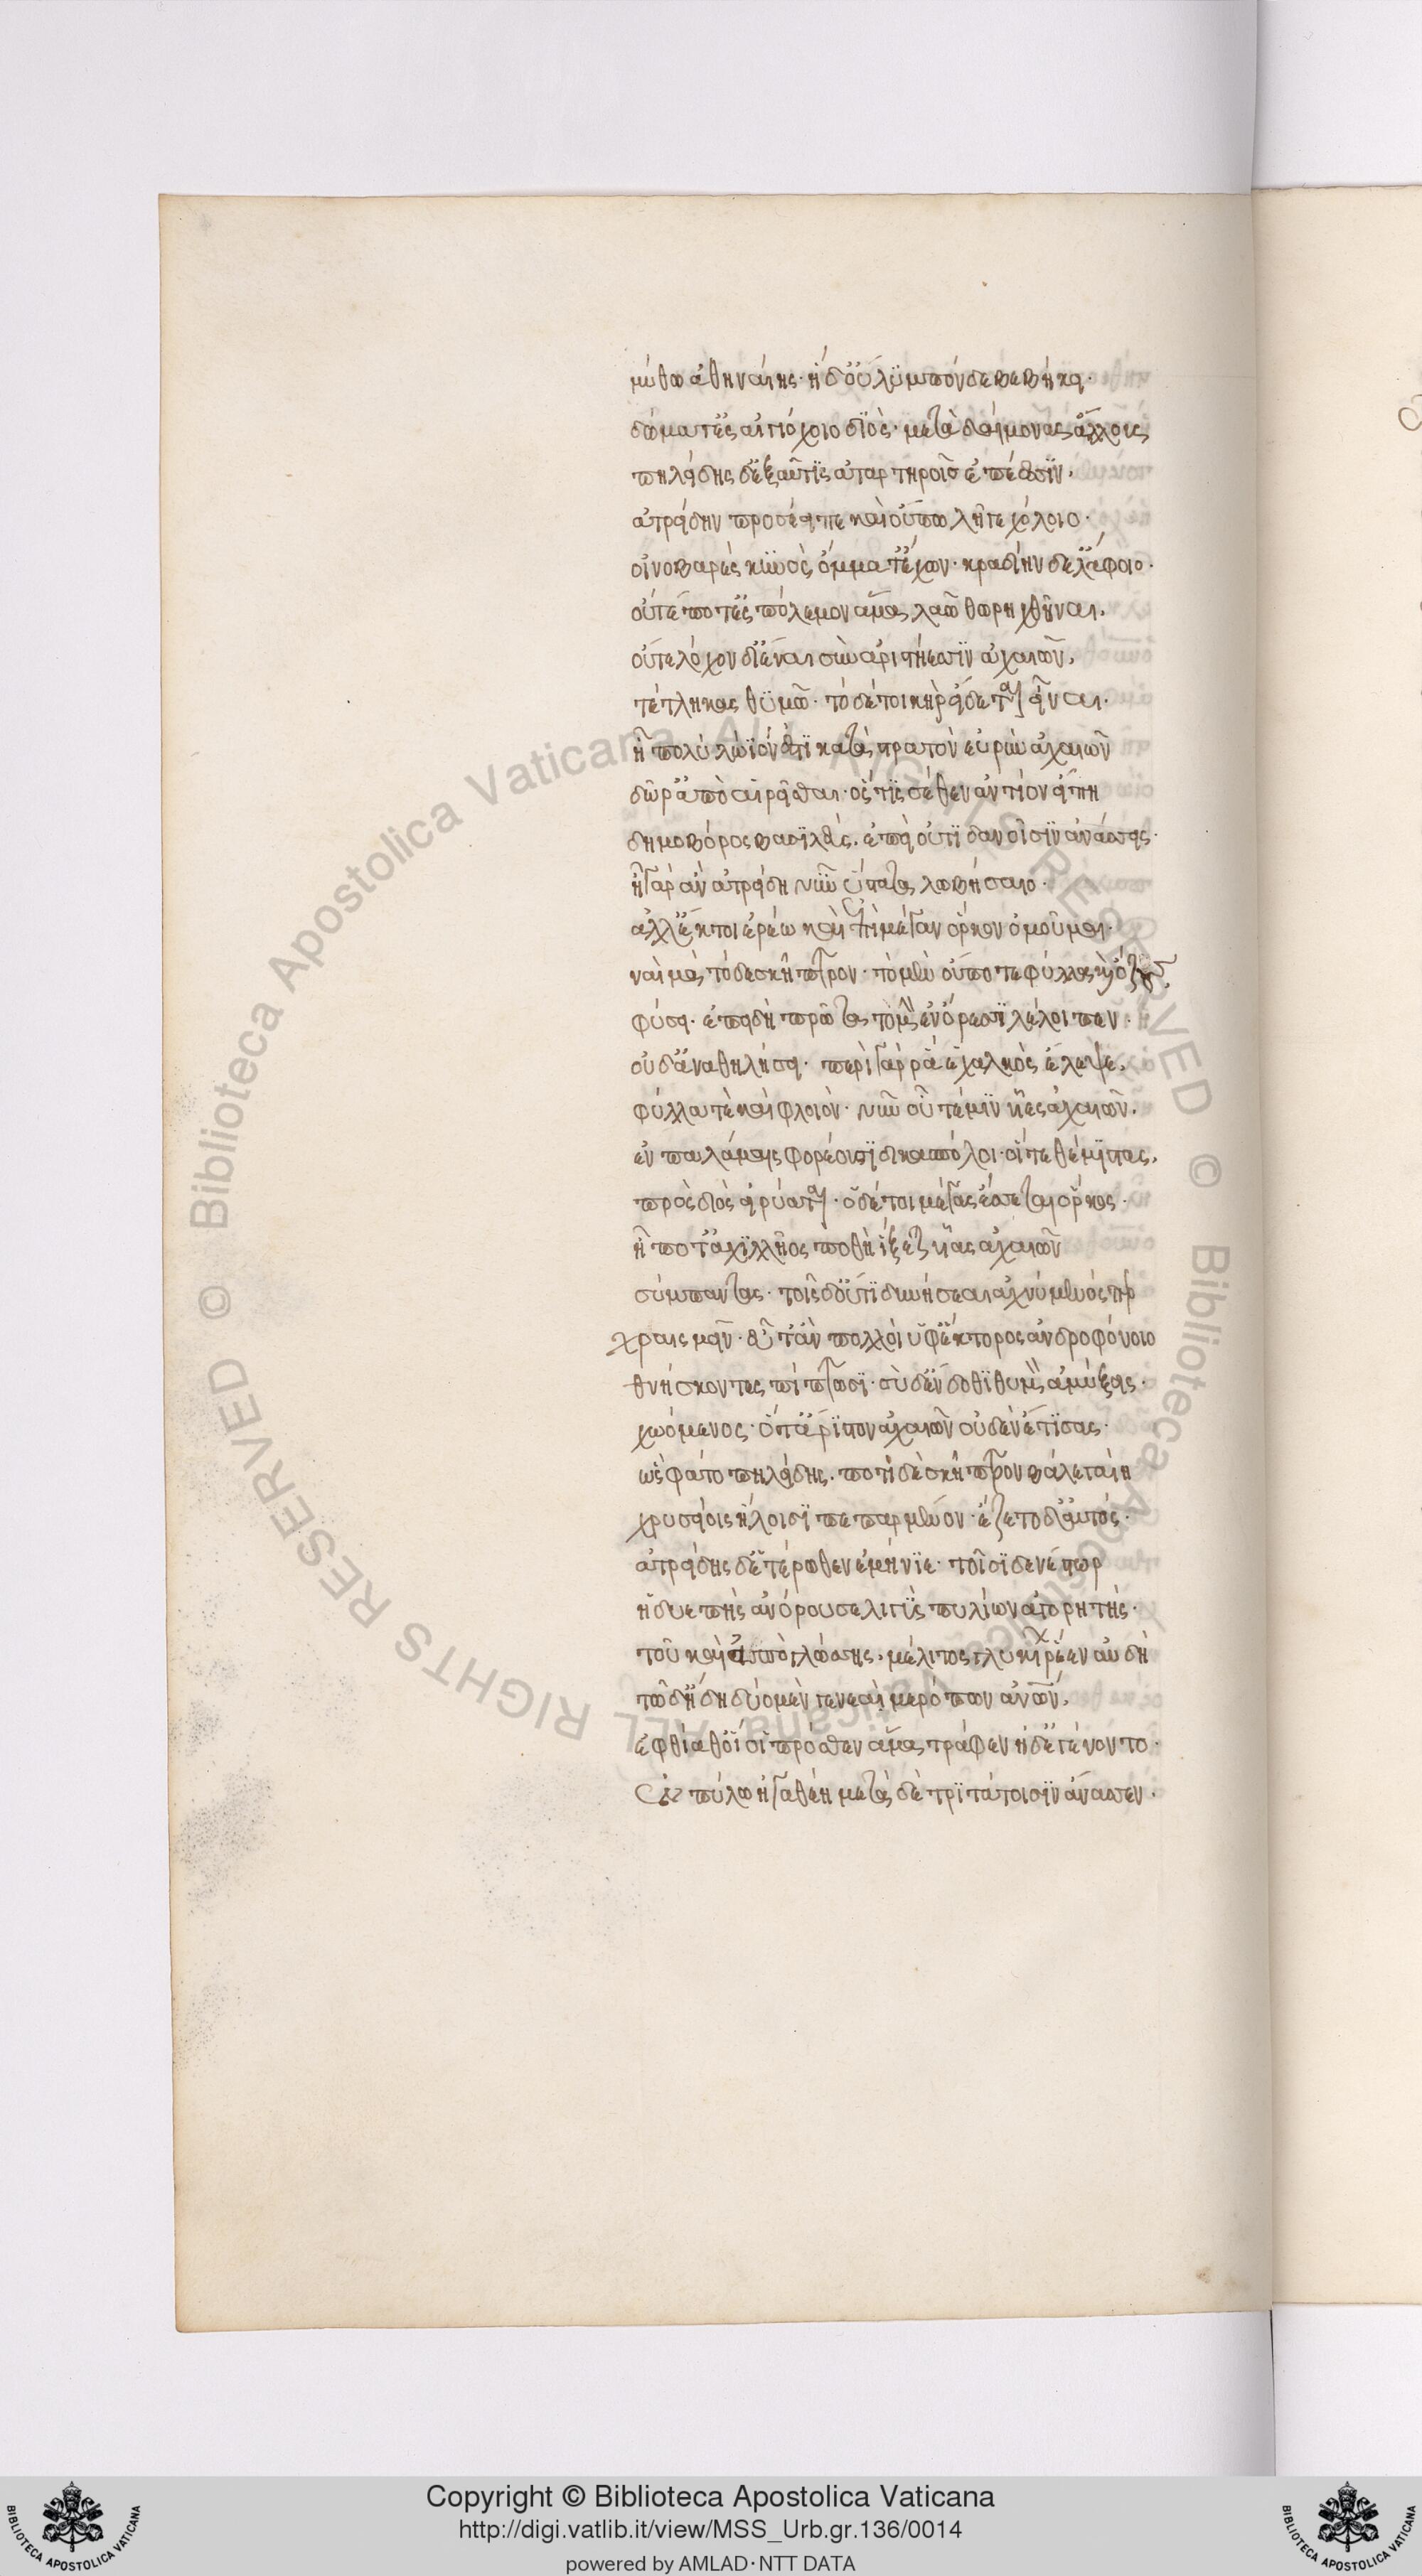 μύθω ἀθηναίης· ἡ δ' οὔλϋμπον δε βεβήκει·
δώματ' ἐς αἰγιόχοιο διὸς· μετὰ δαίμονας ἄλλους
πηλείδης δ' ἐξαῦτις ἀταρτηροῖσ ἐπέεσσϊν,
ἀτρείδην προσέειπε καὶ οὔπω λῆγε χόλοιο·
οἰνοβαρὲς κυνὸς ὄμματ' ἔχων· κραδίην δ' ἐλάφοιο·
οὔτέ ποτ' ἐς πόλεμον ἅμα λαῷ θωρηχθῆναι,
οὔτε λόχον δ' ἰέναι σὺν ἀριστήεσσϊν ἀχαιῶν,
τέτληκας θϋμῶ· τὸ δέ τοι κὴρ εἴδεται εἶναι·
ἦ πολὺ λώϊόν ἐστϊ κατὰ στρατὸν εὐρὺν ἀχαιῶν
δῶρ' ἀποαιρεῖσθαι· ὅς τϊς σέθεν ἀντίον εἴπη
δημοβόρος βασϊλεὺς. ἐπεὶ οὐτιδανοῖσϊν ἀνάσσεις·
ἦ γὰρ ἂν ἀτρείδη νῦν ὕστατα λωβήσαιο·
ἀλλ' ἔκ τοι ἐρέω καὶ ἐπὶ μέγαν ὅρκον ὀμοῦμαι·
ναὶ μὰ τόδε σκῆπτρον· τὸ μὲν οὔποτε φύλλα καὶ ὄζους
φύσει· ἐπειδὴ πρῶτα τομὴν ἐν ὄρεσσϊ λέλοιπεν·
οὐδ' ἀναθηλήσει· περὶ γάρ ῥά ἑ χαλκὸς ἔλεψε,
φύλλα τὲ καὶ φλοιόν· νῦν αὖτέ μϊν υἷες ἀχαιῶν,
ἐν παλάμαις φορέουσϊ δικασπόλοι· οἵτε θέμϊστας,
πρὸς διὸς εἰρύαται· ὁ δέ τοι μέγας ἔσσεται ὅρκος·
ἦ ποτ' ἀχϊλλῆος ποθὴ ἵξεται υἷας ἀχαιῶν
σύμπαντας· τοῖς δ' οὔτϊ δυνήσεαι ἀχνύμενός περ
χραισμεῖν· εὖτ' ἂν πολλοὶ ὑφ' ἕκτορος ἀνδροφόνοιο
θνήσκοντες πίπτωσϊ· σὺ δ' ἔνδοθϊ θυμὸν ἀμύξεις·
χωόμενος· ὅτ' ἄρϊστον ἀχαιῶν οὐδὲν ἔτϊσας·
ὣς φάτο πηλείδης. ποτὶ δὲ σκῆπτρον βάλε γαίη
χρυσείοις ἥλοισϊ πεπαρμένον· ἕζετο δ' αὐτός·
ἀτρείδης δ' ἑτέρωθεν ἐμήνϊε· τοῖσϊ δε νέστωρ
ἡδυεπὴς ἀνόρουσε λιγϋς πυλίων ἀγορητής·
τοῦ καὶ ἀπὸ γλώσσης. μέλιτος γλυκίων ῥέεν αὐδὴ
τῶ δ' ἤδη δύο μὲν γενεαὶ μερόπων ἀνων,
ἐφθίαθ' οἵ οἱ πρόσθεν ἅμα τράφεν ἠδ' ἐγένοντο·
ἐν πύλω ἠγαθέη μετὰ δὲ τρϊτάτοισϊν ἄνασσεν·
© Biblioteca Apostolica Vaticana ALL RIGHTS RESERVED © Biblioteca Apostolica Vaticana ALL RIGHTS RESERVED
Copyright © Biblioteca Apostolica Vaticana
http://digi.vatlib.it/view/MSS_Urb.gr.136/0014
powered by AMLAD·NTT DATA
BIBLIOTECA APOSTOLICA VATICANA
BIBLIOTECA APOSTOLICA VATICANA